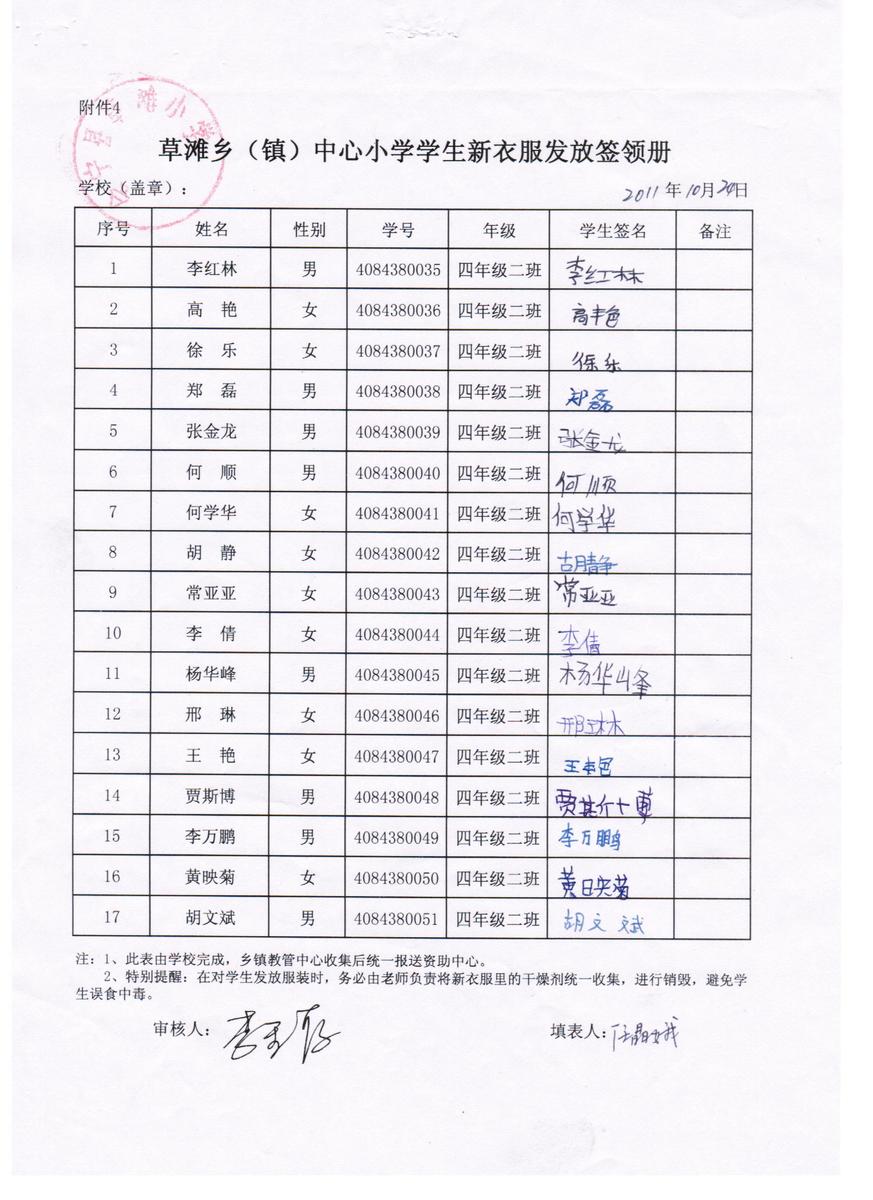 附件4
草滩乡（镇）中心小学学生新衣服发放签领册
学校（盖章）： 2011年10月20日
序号 姓名 性别 学号 年级 学生签名 备注
1 李红林 男 4084380035 四年级二班 李红林
2 高 艳 女 4084380036 四年级二班 高艳
3 徐 乐 女 4084380037 四年级二班 徐乐
4 郑 磊 男 4084380038 四年级二班 郑磊
5 张金龙 男 4084380039 四年级二班 张金龙
6 何 顺 男 4084380040 四年级二班 何顺
7 何学华 女 4084380041 四年级二班 何学华
8 胡 静 女 4084380042 四年级二班 胡静
9 常亚亚 女 4084380043 四年级二班 常亚亚
10 李 倩 女 4084380044 四年级二班 李倩
11 杨华峰 男 4084380045 四年级二班 杨华峰
12 邢 琳 女 4084380046 四年级二班 邢琳
13 王 艳 女 4084380047 四年级二班 王艳
14 贾斯博 男 4084380048 四年级二班 贾斯博
15 李万鹏 男 4084380049 四年级二班 李万鹏
16 黄映菊 女 4084380050 四年级二班 黄映菊
17 胡文斌 男 4084380051 四年级二班 胡文斌
注：1、此表由学校完成，乡镇教管中心收集后统一报送资助中心。
2、特别提醒：在对学生发放服装时，务必由老师负责将新衣服里的干燥剂统一收集，进行销毁，避免学
生误食中毒。
审核人： 填表人：任晶娥